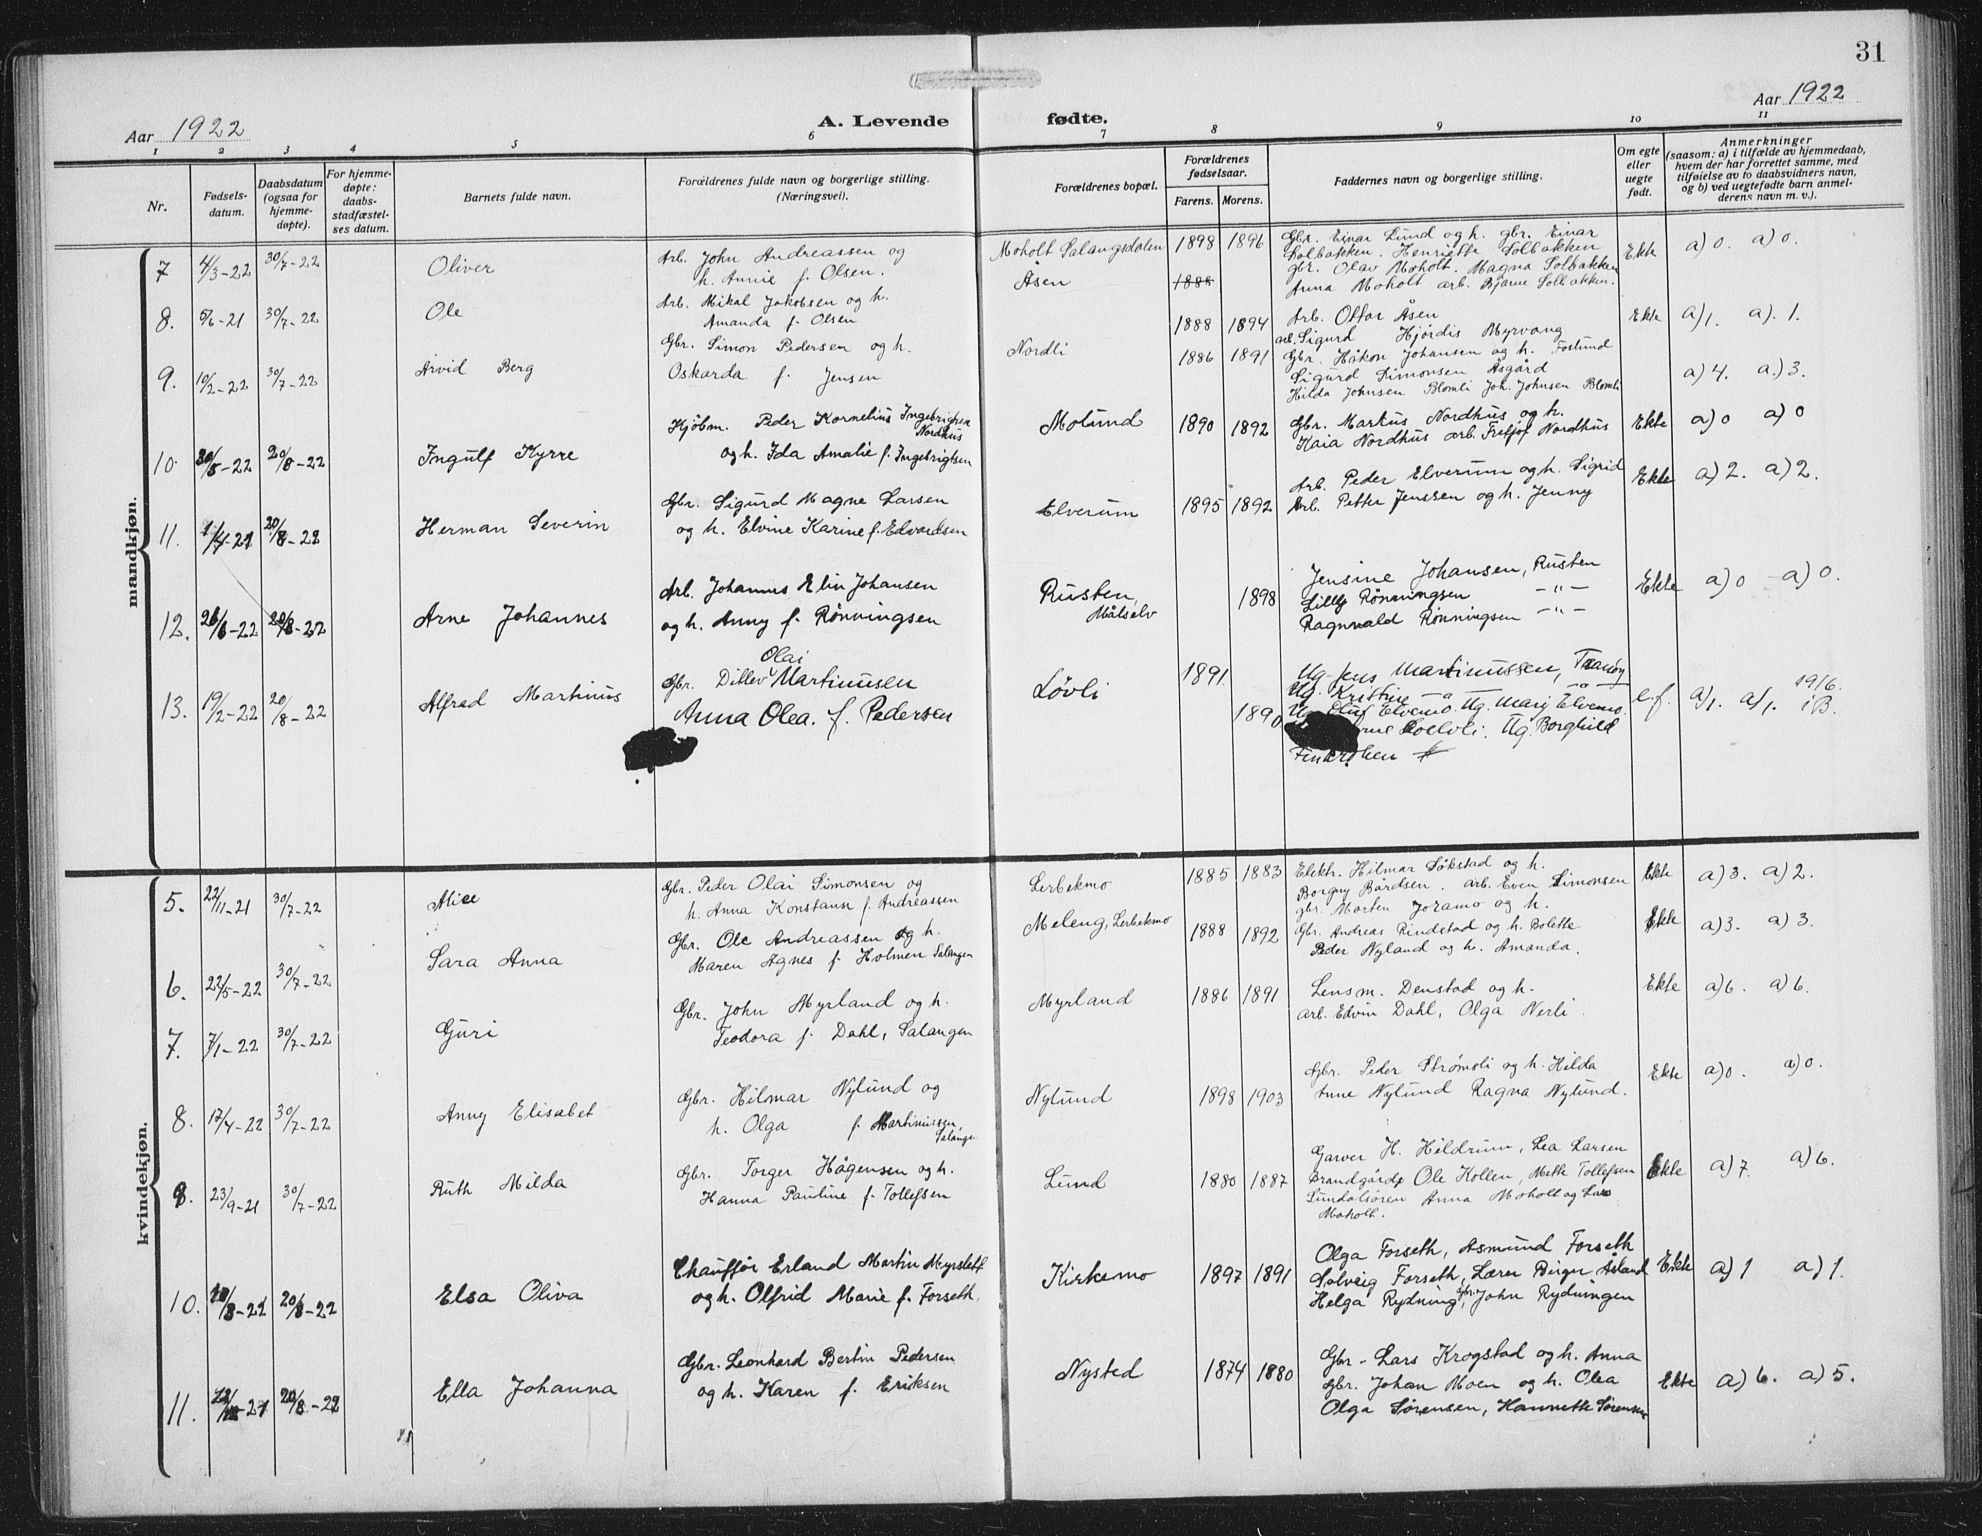 31
Aar 1922
A. Levende fødte.
Aar 1922
1 2 3 4 5 6 7 8 9 10 11
Nr.
Fødsels-
datum.
Daabsdatum
(ogsaa for
hjemme-
døpte).
For hjemme-
døpte:
daabs-
stadfæstel-
ses datum.
Barnets fulde navn.
Forældrenes fulde navn og borgerlige stilling.
(Næringsvei).
Forældrenes bopæl.
Forældrenes
fødselsaar.
Farens. Morens.
Faddernes navn og borgerlige stilling.
Om egte
eller
uegte
født.
Anmerkninger
(saasom: a) i tilfælde av hjemmedaab,
hvem der har forrettet samme, med
tilføielse av to daabsvidners navn,
og b) ved uegtefødte barn anmel-
derens navn m. v.).
mandkjøn.
7 4/3-22 30/7-22 Oliver
Arb. John Andreassen og
h. Annie f. Olsen.
Moholt Salangsdalen 1898 1896
Gbr. Einar Lund og h. gbr. Einar
Solbakken. Henriette Solbakken
gbr. Olav Moholt. Magna Solbakken
Anna Moholt arb. Bjarne Solbakken.
Ekte a) 0. a) 0.
8. 5/6-21 30/7-22 Ole
Arb. Mikal Jakobsen og h.
Amanda f. Olsen
Åsen 1888
1888 1894
Arb. Ottar Åsen
arb. Sigurd Hjørdis Myrvang
Ekte a) 1. a). 1.
9. 10/2-22 30/7-22 Arvid Berg
Gbr. Simon Pedersen og h.
Oskarda f. Jensen
Nordli 1886 1891
Gbr. Håkon Johansen og h. Foslund
Sigurd Simonsen Åsgård
Hilda Johnsen Blomli Joh. Johnsen Blomli
a) 4. a.) 3.
10. 20/8-22 Ingulf Kyrre
Kjøbm. Peder Kornelius Ingebrigtsen
Nordhus
og h. Ida Amalie f. Ingebrigtsen
Molund 1890 1892
Gbr. Markus Nordhus og h.
Kaia Nordhus arb. Fretjof Nordhus
Ekte a) 0 a) 0
11. 20/8-22 Herman Severin
Gbr. Sigurd Magne Larsen
og h. Elvine Karine f. Edvardsen
Elverum 1895 1892
Arb. Peder Elverum og h. Sigrid
Arb. Petter Jenssen og h. Jenny
Ekte a) 2. a) 2.
12. 26/6-22 20/8-22 Arne Johannes
Arb. Johannes Elin Johansen
og h. Anny f. Rønningsen
Rusten,
Målselv
1898
Jensine Johansen, Rusten
Lilly Rønningsen -"-
Ragnvald Rønningsen -"-
Ekte a) 0 a) 0.
13. 19/2-22 20/8-22 Alfred Martinus
Olai
Gbr. Ditlev Martinusen
Anna Olea. f. Pedersen
Løvli 1891 1890
Ug. Jens Martinussen, Tranøy
Ug. Kristine
Ug. Oluf Elvemo. Ug. Mary Elvemo.
Ug. Borghild
e.f. a) 1. a) 1. 1916.
i B.
kvindekjøn.
5. 22/11-21 30/7-22 Alice
Gbr. Peder Olai Simonsen og
h. Anna Konstanse f. Andreassen
Lerbekmo 1885 1883
Elektr. Hilmar Søkstad og h.
Borgny Bårdsen. arb. Even Simonsen
gbr. Morten Joramo og h.
Ekte a) 3. a) 2.
6. 22/5-22 30/7-22 Sara Anna
Gbr. Ole Andreassen og h.
Maren Agnes f. Holmen Salangen
Meleng, Lerbekmo 1888 1892
Gbr. Andreas Rindstad og h. Bolette
Peder Nyland og h. Amanda.
Ekte a) 3. a) 3.
7. 7/1-22 30/7-22 Guri
Gbr. John Myrland og h.
Teodora f. Dahl, Salangen
Myrland 1886 1891
Lensm. Denstad og h.
arb. Edvin Dahl, Olga Nerli
Ekte a) 6. a) 6.
8. 17/4-22 30/7-22 Anny Elisabet
Gbr. Hilmar Nylund og
h. Olga f. Martinussen,
Salangen
Nylund 1898 1903
Gbr. Peder Strømsli og h. Hilda
Anne Nylund Ragna Nylund.
Ekte a) 0. a) 0.
9. 23/9-21 30/7-22 Ruth Milda
Gbr. Torger Hågensen og h.
Hanna Pauline f. Tollefsen
Lund 1880 1887
Garver H. Hildrum, Lea Larsen
Brandgårds Ole Kollen, Meth Tollefsen
Sundalsören Anna Moholt og Lars
Moholt.
Ekte a) 7. a) 6.
10. 20/8-22 Elsa Oliva
Chauffør Erland Martin Myrslett
og h. Olfrid Marie f. Forseth.
Kirkemo 1897 1891
Olga Forseth, Asmund Forseth
Solveig Forseth, Lærer Birger Åsland
Helga Rydning, gbr. John Rydningen
Ekte a) 1 a) 1.
11. 20/8-22 Ella Johanna
Gbr. Leonhard Bertin Pedersen
og h. Karen f. Eriksen
Nysted 1874 1880
Gbr. Lars Krogstad og h. Anna
Gbr. Johan Moen og h. Olea
Olga Sørensen, Hannette Sørensen
Ekte a) 6. a) 5.